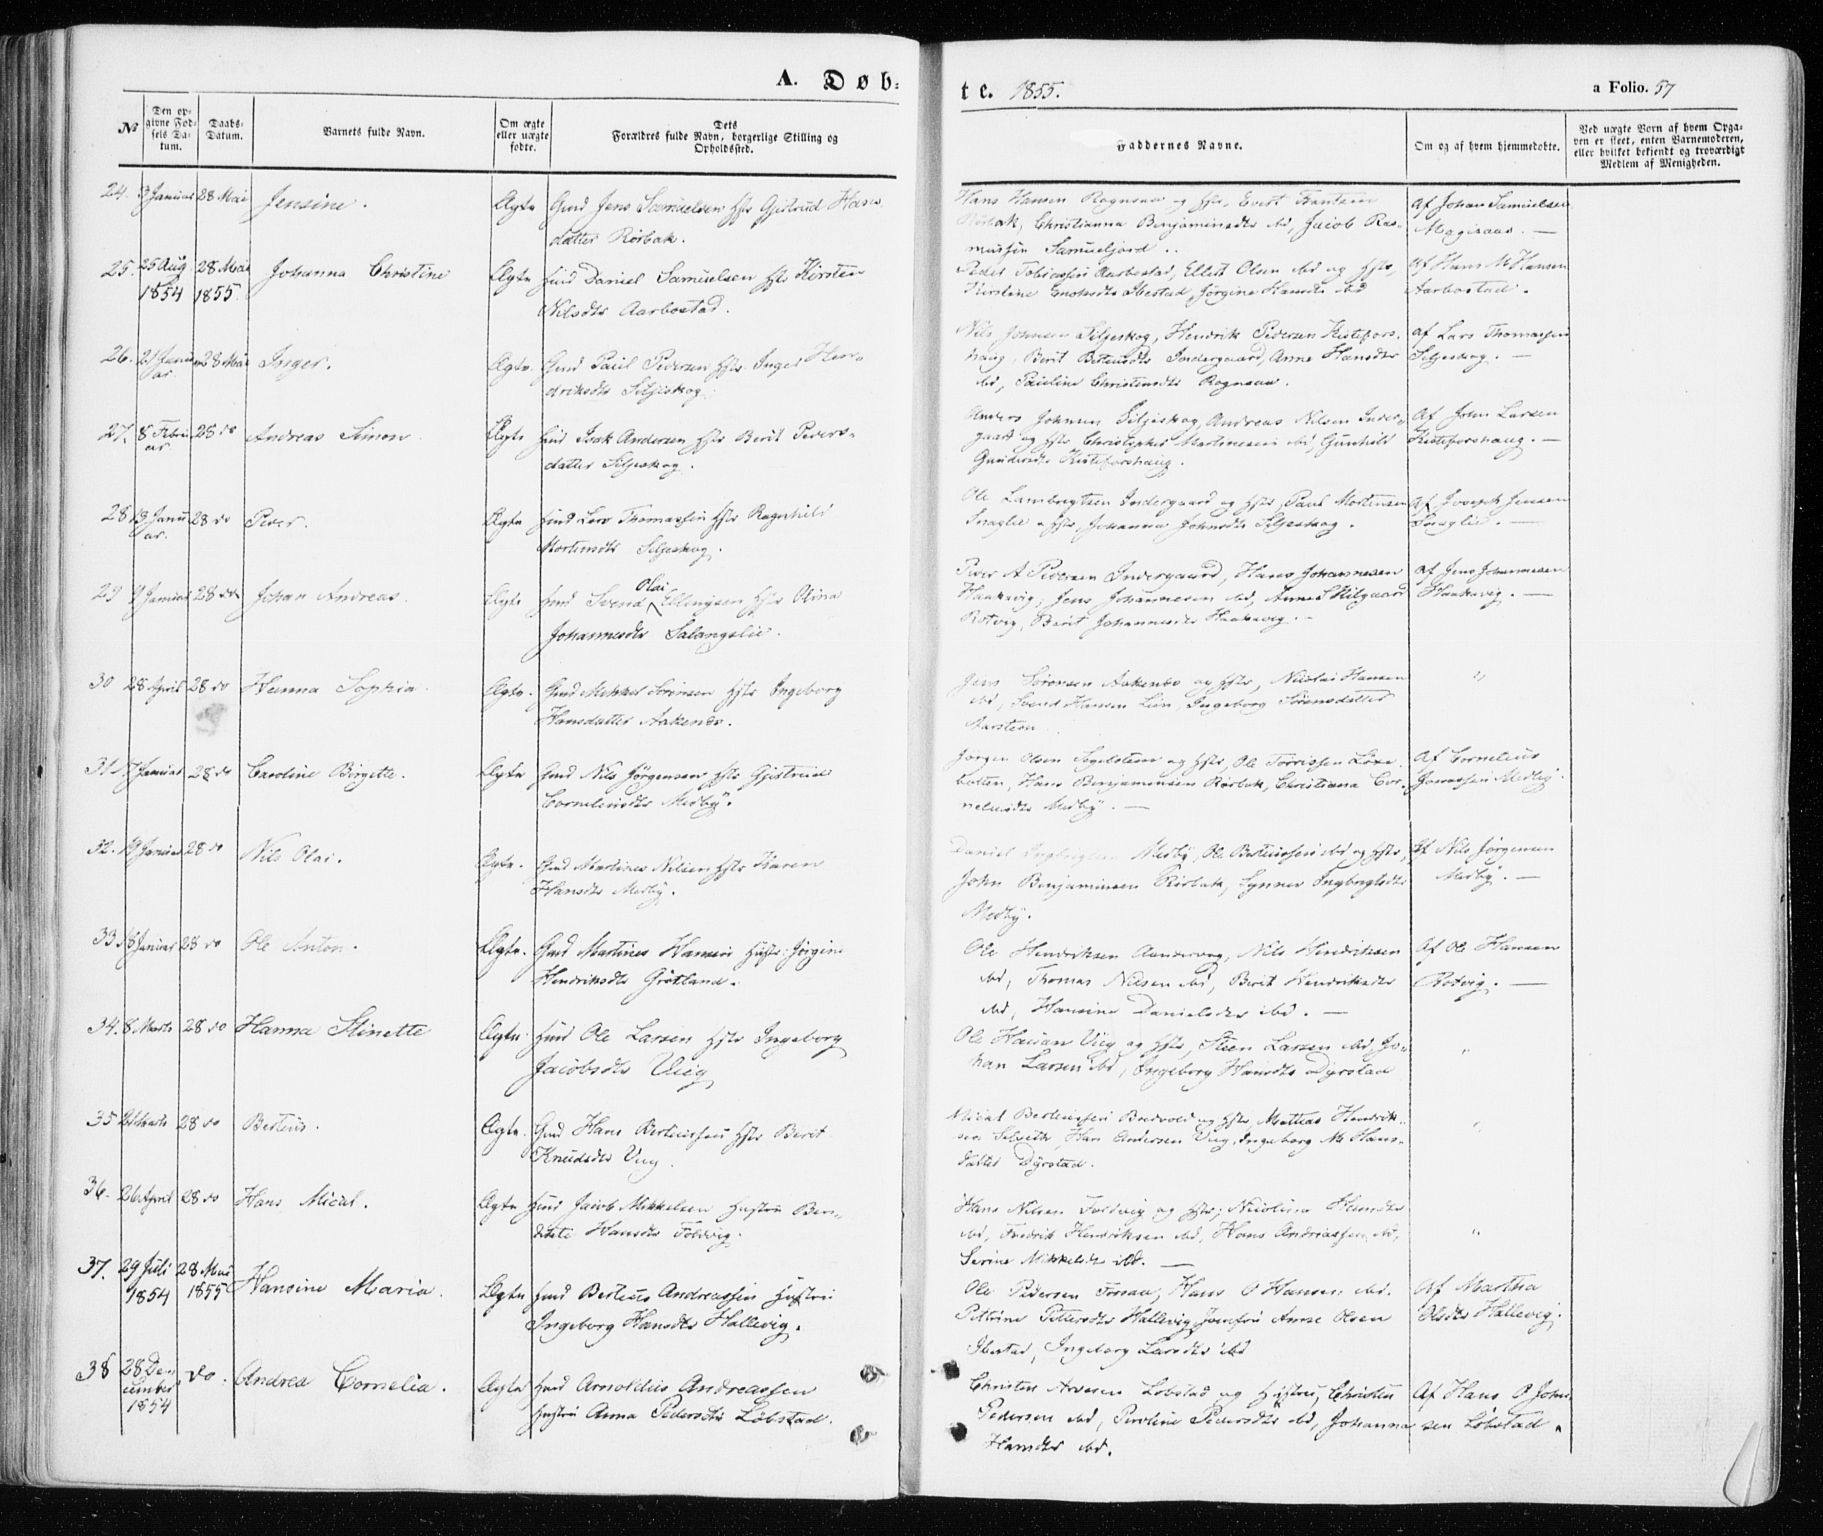 A. Døb:
te. 1855.
a Folio. 57
№
Den op-
givne Fød-
sels Da-
tum.
Daabs-
Datum.
Barnets fulde Navn.
Om ægte
eller uægte
fødte.
Dets
Forældres fulde Navn, borgerlige Stilling og
Opholdssted.
Faddernes Navne.
Om og af hvem hjemmedøbte.
Ved uægte Børn af hvem Opga-
ven er skeet, enten Barnemoderen,
eller hvilket bekjendt og troværdigt
Medlem af Menigheden.
24. 3 Januar 28 Mai Jensine. Ægte Jens Samuelsen Hstr Gjertrud Hans
datter Rørbak.
Hans Hansen Rognsaa og Hstr,
Rørbak, Christianna Benjaminsdtr ibd, Jacob Ras-
mussen
Af Johan Samuelsen
25. 25 Aug 28 Mai Johanna Christine Ægte Daniel Samuelsen Hstr Kirsten
1854 1855. Nilsdtr Aarbostad.
Peder Tobiassen Aarbostad, Ellert Olsen ibd og Hstr,
Kirstine Enoksdtr Ibestad, Jørgine Hansdtr ibd
Af Hans M Hansen
Aarbostad.
26. 21 Janu- 28 Mai Inger. Ægte Paul Pedersen Hstr Inger Hen-
ar. driksdtr Siljeskog.
Nils Johnsen Siljeskog, Hendrik Pedersen Kistefors-
haug, Berit Indergaard, Anne Hansdtr
ibd, Pauline Christensdtr Rognsaa.
af Lars Thomassen
Siljeskog.
27. 8 Febru- 28 do Andreas Simon Ægte Isak Andersen Hstr Berit Peders-
ar. datter Siljeskog.
Anders Johnsen Siljeskog, Andreas Nilsen Inder-
gaard og Hstr, Christopher Martinesen ibd, Gunhild
Gundersdtr Kisteforshaug.
Af John Larsen
Kisteforshaug.
28 13 Janu- 28 do Peder. Ægte Lars Thomassen Hstr Ragnhild
ar. Mortensdtr Siljeskog.
Ole Lambregtsen Indergaard og Hstr, Paul Mortensen
Snaglie og Hstr, Johanna Johnsdtr Siljeskog.
Af Joseph Jensen
Snaglie.
29 9 Januar 28 do Johan Andreas. Ægte Svend Olai Ellingsen Hstr Olina
Johannesdtr Salangslie.
Peder A Pedersen Indergaard, Hans Johannesen
Haakavig, Jens Johannesen ibd, Anne S Hilgaard
Rotvig, Berit Johannesdtr Haakavig.
af Jens Johannesen
Haakavig.
30 28 April 28 do Hanna Sophia. Ægte. Gmd Mikkel Sørensen Hstr Ingeborg
Hansdatter Aakenes.
Jens Sørensen Aakenes og Hstr, Nicolai Hansen
ibd, Svend Hansen Lien, Ingeborg Sørensdatter
Aarsteen
"
31 17 Januar 28 do Caroline Birgette. Ægte Gmd Nils Jørgensen Hstr Gjertrud
Corneliusdtr Medby.
Jørgen Olsen og Hstr, Ole Torrissen
Hans Benjaminsen Rørbak, Christiana Cor-
neliusdtr Medby.
Af Cornelius
Jonassen Medby.
32. 19 Januar 28 do Nils Olai. Ægte. Gmd Martines Nilsen Hstr Karen
Hansdtr Medby.
Daniel Medby, Ole ibd og Hstr,
John Benjaminsen Rørbak, Synner Ingbrigtsdtr
Medby.
Af Nils Jørgensen
Medby.
33 18 Januar 28 do Ole Anton. Ægte. Gmd Martines Hansen Hustr: Jørgine
Hendriksdtr Grøtland.
Ole Hendriksen Nils Hendriksen
ibd, Thomas Nilsen ibd, Berit Hendriksdtr
ibd, Hansine Danielsdtr ibd.
Af Ole Hansen
Rotvig.
34. 8 Marts 28 do Hanna Stinette Ægte Ole Larsen Hstr Ingeborg
Jacobsdtr Vieg
Ole Vieg og Hstr, Steen Larsen ibd, Jo-
han Larsen ibd, Ingeborg Hansdtr Dyrstad
"
35 21 Marts 28 do Berteus. Ægte. Gmd Hans Berteussen Hstr Berit
Knudsdtr Vieg.
Berteussen og Hstr, Mathias Hendrik-
sen Hans Andersen Vieg, Ingeborg M Hans-
datter Dyrstad.
"
36. 26 April 28 do Hans Mical. Ægte Jacob Mikkelsen Hustru Ben-
dikte Hansdtr Foldvig.
Hans Nilsen Foldvig og Hstr, Nicolina Hansdtr
ibd, Fredrik Hendriksen ibd, Hans Andreassen ibd,
Serine Mikkelsdtr ibd.
"
37. 29 Juli 28 Mai Hansine Maria. Ægte Berteus Andreassen Hustru
1854 1855 Ingeborg Hansdtr Hallevig.
Ole Pedersen Hans O Hansen ibd.
Petrine Pettersdtr Hallevig, Jomfru Anne Olsen
Ibestad, Ingeborg Larsdtr ibd
Af Martha
Olsdtr Hallevig.
38 28 De- do. Andrea Cornelia. Ægte Arnoldus Andreassen
cember Hustru Anna Pedersdtr Løbstad.
1854
Christen Løbstad og Hustru, Christen
Pedersen ibd, Peroline Pedersdtr ibd, Johanna
Hansdtr ibd.
Af Hans P John-
sen Løbstad